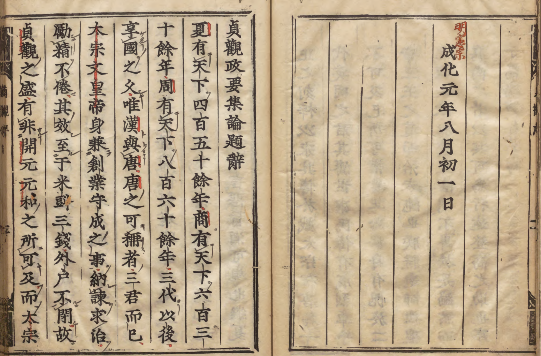 明憲宗
成化元年八月初一日
貞觀政要集論題辭
夏有天下四百五十餘年商有天下六百三
十餘年周有天下八百六十餘年三代以後
享國之久唯漢與唐唐之可稱者三君而已
太宗文皇帝身兼創業守成之事納諫求治
勵精不倦其效至于米斗三錢外戶不閉故
貞觀之盛有非開元元和之所可及而太宗